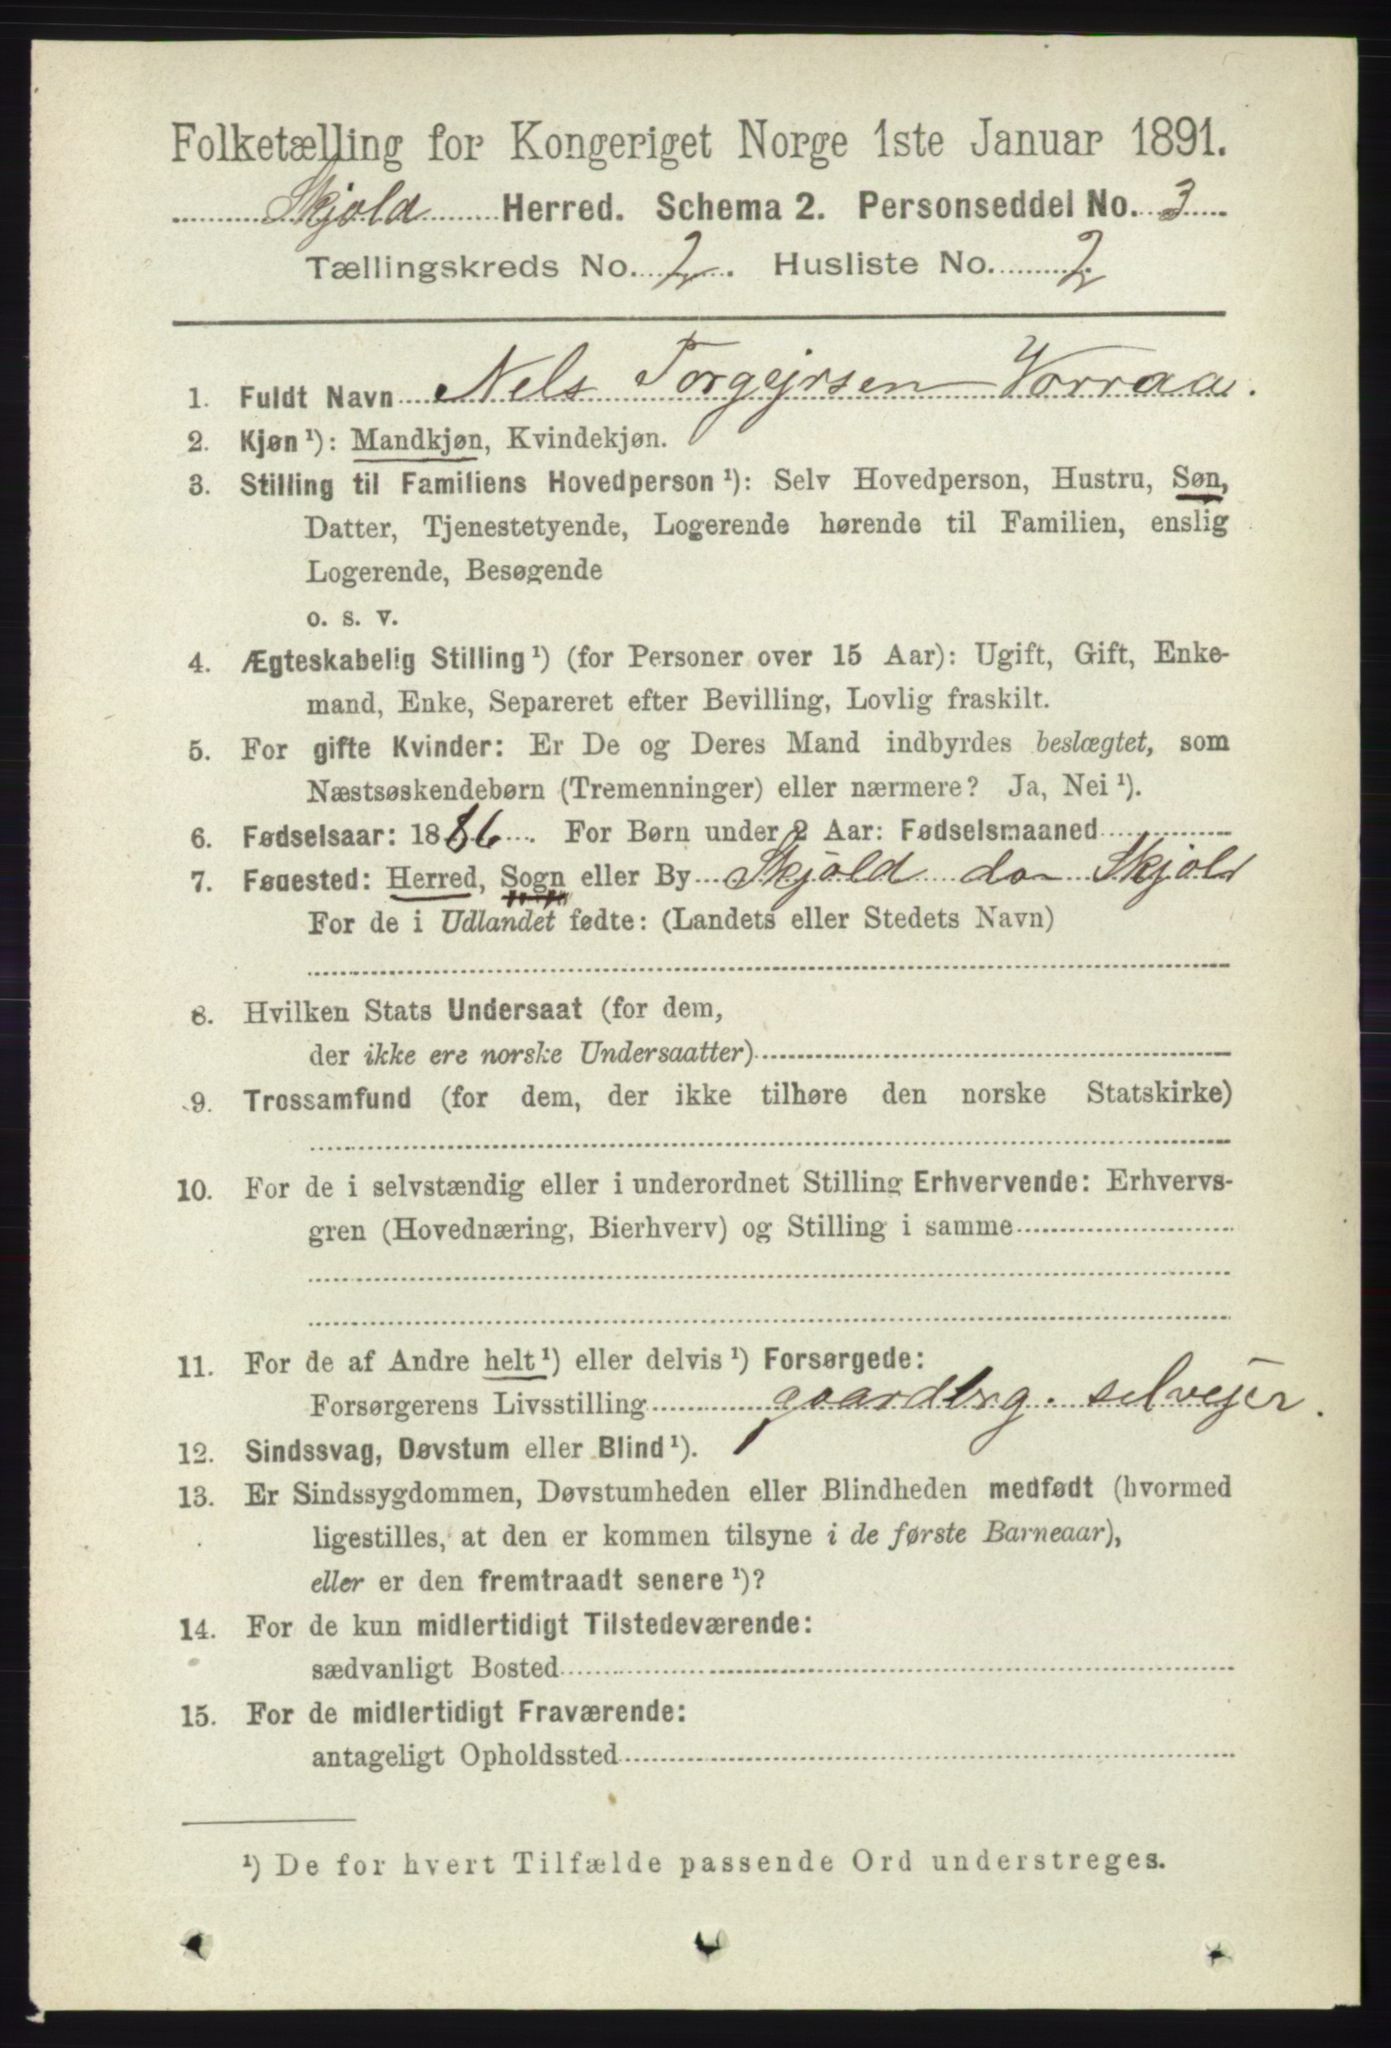 Folketælling for Kongeriget Norge 1ste Januar 1891.
Skjold Herred. Schema 2. Personseddel No. 3
Tællingskreds No. 2. Husliste No. 2
1. Fuldt Navn Nels Torgejrsen Vorraa.
2. Kjøn¹): Mandkjøn, Kvindekjøn.
3. Stilling til Familiens Hovedperson¹): Selv Hovedperson, Hustru, Søn,
Datter, Tjenestetyende, Logerende hørende til Familien, enslig
Logerende, Besøgende
o. s. v.
4. Ægteskabelig Stilling¹) (for Personer over 15 Aar): Ugift, Gift, Enke-
mand, Enke, Separeret efter Bevilling, Lovlig fraskilt.
5. For gifte Kvinder: Er De og Deres Mand indbyrdes beslægtet, som
Næstsøskendebørn (Tremenninger) eller nærmere? Ja, Nei¹).
6. Fødselsaar: 1886. For Børn under 2 Aar: Fødselsmaaned
7. Fødested: Herred, Sogn eller By Skjold do Skjold
For de i Udlandet fødte: (Landets eller Stedets Navn)
8. Hvilken Stats Undersaat (for dem,
der ikke ere norske Undersaatter)
9. Trossamfund (for dem, der ikke tilhøre den norske Statskirke)
10. For de i selvstændig eller i underordnet Stilling Erhvervende: Erhvervs-
gren (Hovednæring, Bierhverv) og Stilling i samme
11. For de af Andre helt¹) eller delvis¹) Forsørgede:
Forsørgerens Livsstilling gaardbrg. selvejer.
12. Sindssvag, Døvstum eller Blind¹).
13. Er Sindssygdommen, Døvstumheden eller Blindheden medfødt (hvormed
ligestilles, at den er kommen tilsyne i de første Barneaar),
eller er den fremtraadt senere¹)?
14. For de kun midlertidigt Tilstedeværende:
sædvanligt Bosted
15. For de midlertidigt Fraværende:
antageligt Opholdssted
¹) De for hvert Tilfælde passende Ord understreges.